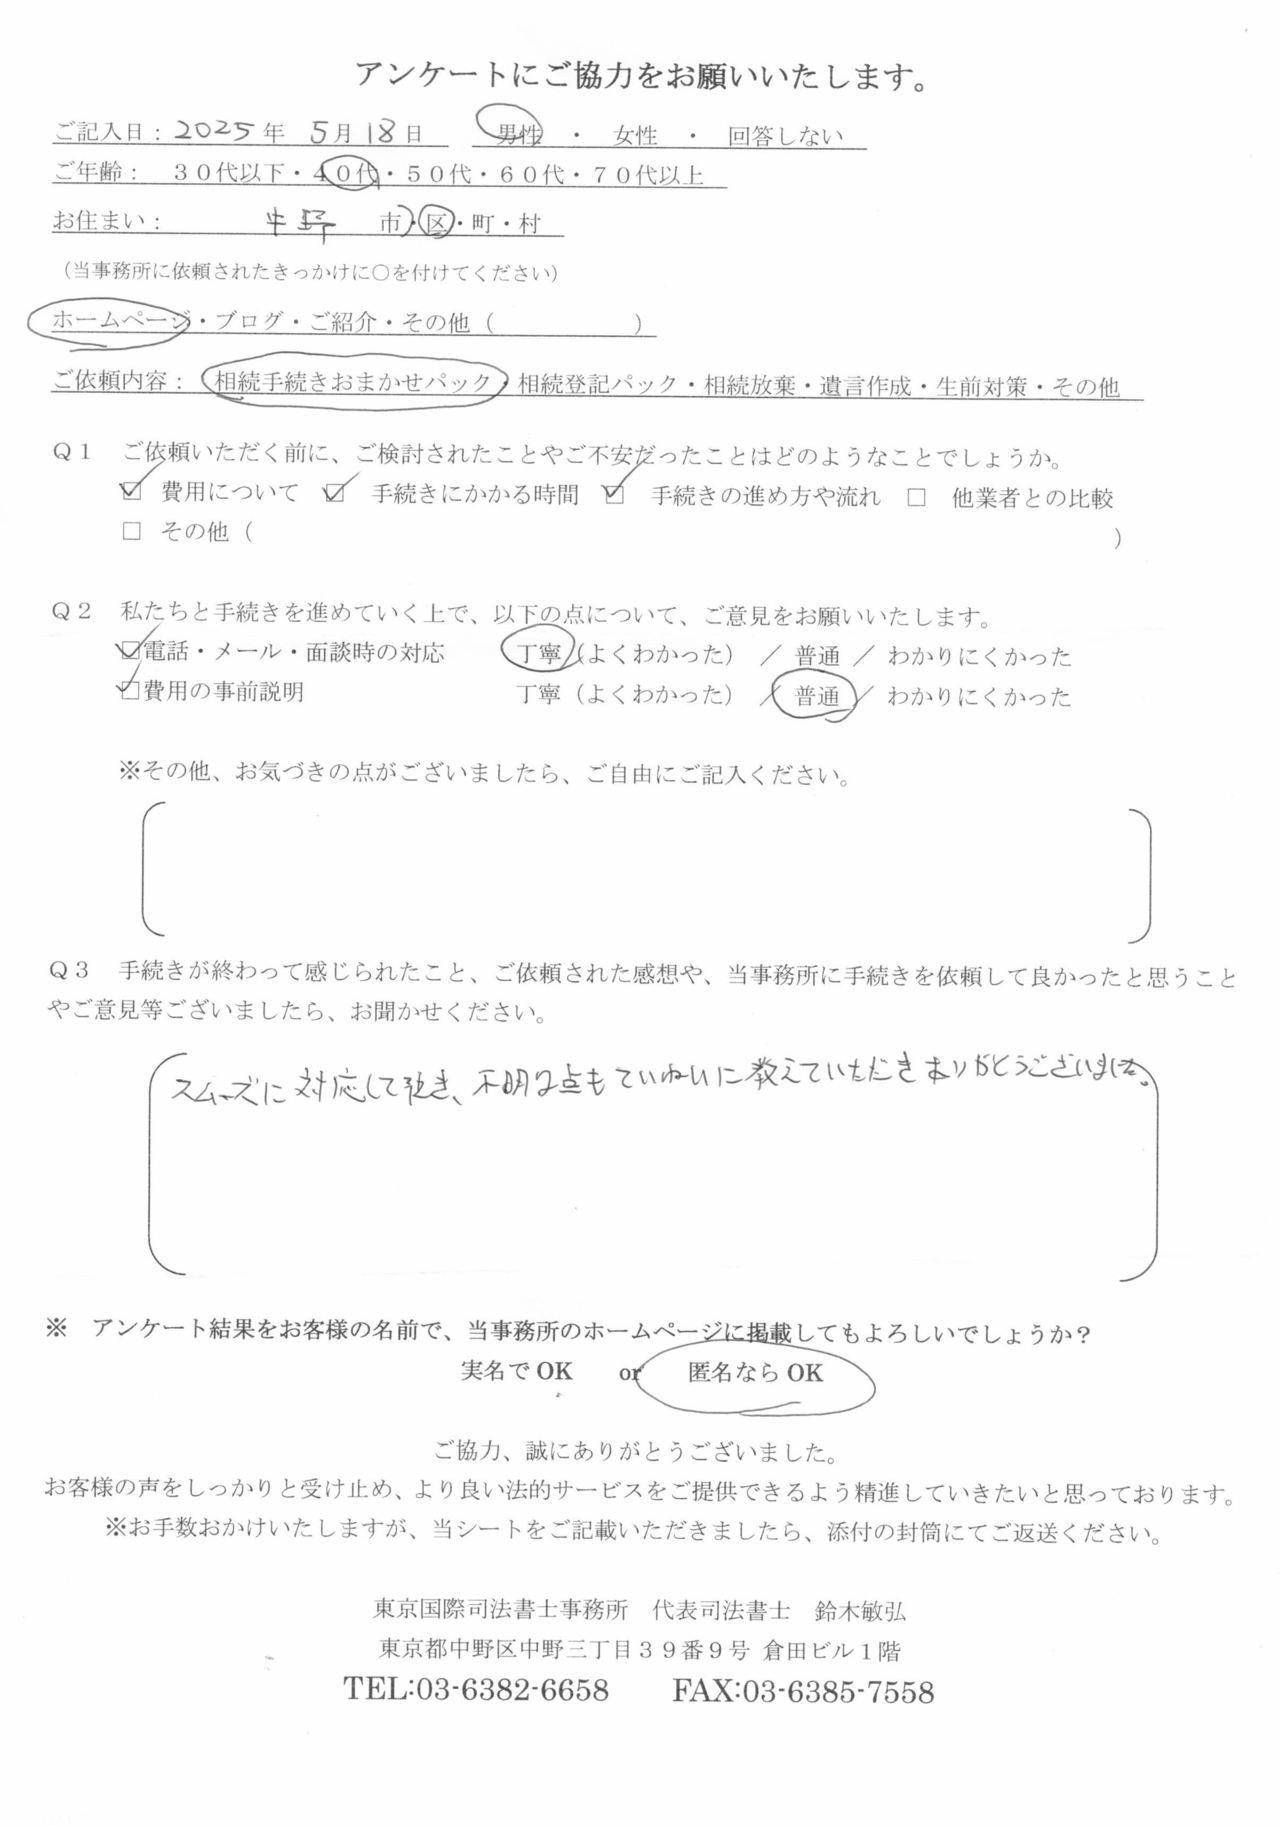 アンケートにご協力をお願いいたします。
ご記入日：2025年 5月18日 男性 ・ 女性 ・ 回答しない
ご年齢： ３０代以下・４０代・５０代・６０代・７０代以上
お住まい： 中野 市・区・町・村
（当事務所に依頼されたきっかけに○を付けてください）
ホームページ・ブログ・ご紹介・その他（ ）
ご依頼内容： 相続手続きおまかせパック・相続登記パック・相続放棄・遺言作成・生前対策・その他
Ｑ１ ご依頼いただく前に、ご検討されたことやご不安だったことはどのようなことでしょうか。
☑ 費用について ☑ 手続きにかかる時間 ☑ 手続きの進め方や流れ □ 他業者との比較
□ その他（ ）
Ｑ２ 私たちと手続きを進めていく上で、以下の点について、ご意見をお願いいたします。
☑電話・メール・面談時の対応 丁寧（よくわかった） ／ 普通 ／ わかりにくかった
☑費用の事前説明 丁寧（よくわかった） ／ 普通 ／ わかりにくかった
※その他、お気づきの点がございましたら、ご自由にご記入ください。
Ｑ３ 手続きが終わって感じられたこと、ご依頼された感想や、当事務所に手続きを依頼して良かったと思うこと
やご意見等ございましたら、お聞かせください。
スムーズに対応して頂き、不明な点もていねいに教えていただきありがとうございました。
※ アンケート結果をお客様の名前で、当事務所のホームページに掲載してもよろしいでしょうか？
実名でOK or 匿名ならOK
ご協力、誠にありがとうございました。
お客様の声をしっかりと受け止め、より良い法的サービスをご提供できるよう精進していきたいと思っております。
※お手数おかけいたしますが、当シートをご記載いただきましたら、添付の封筒にてご返送ください。
東京国際司法書士事務所 代表司法書士 鈴木敏弘
東京都中野区中野三丁目３９番９号 倉田ビル１階
TEL:03-6382-6658 FAX:03-6385-7558